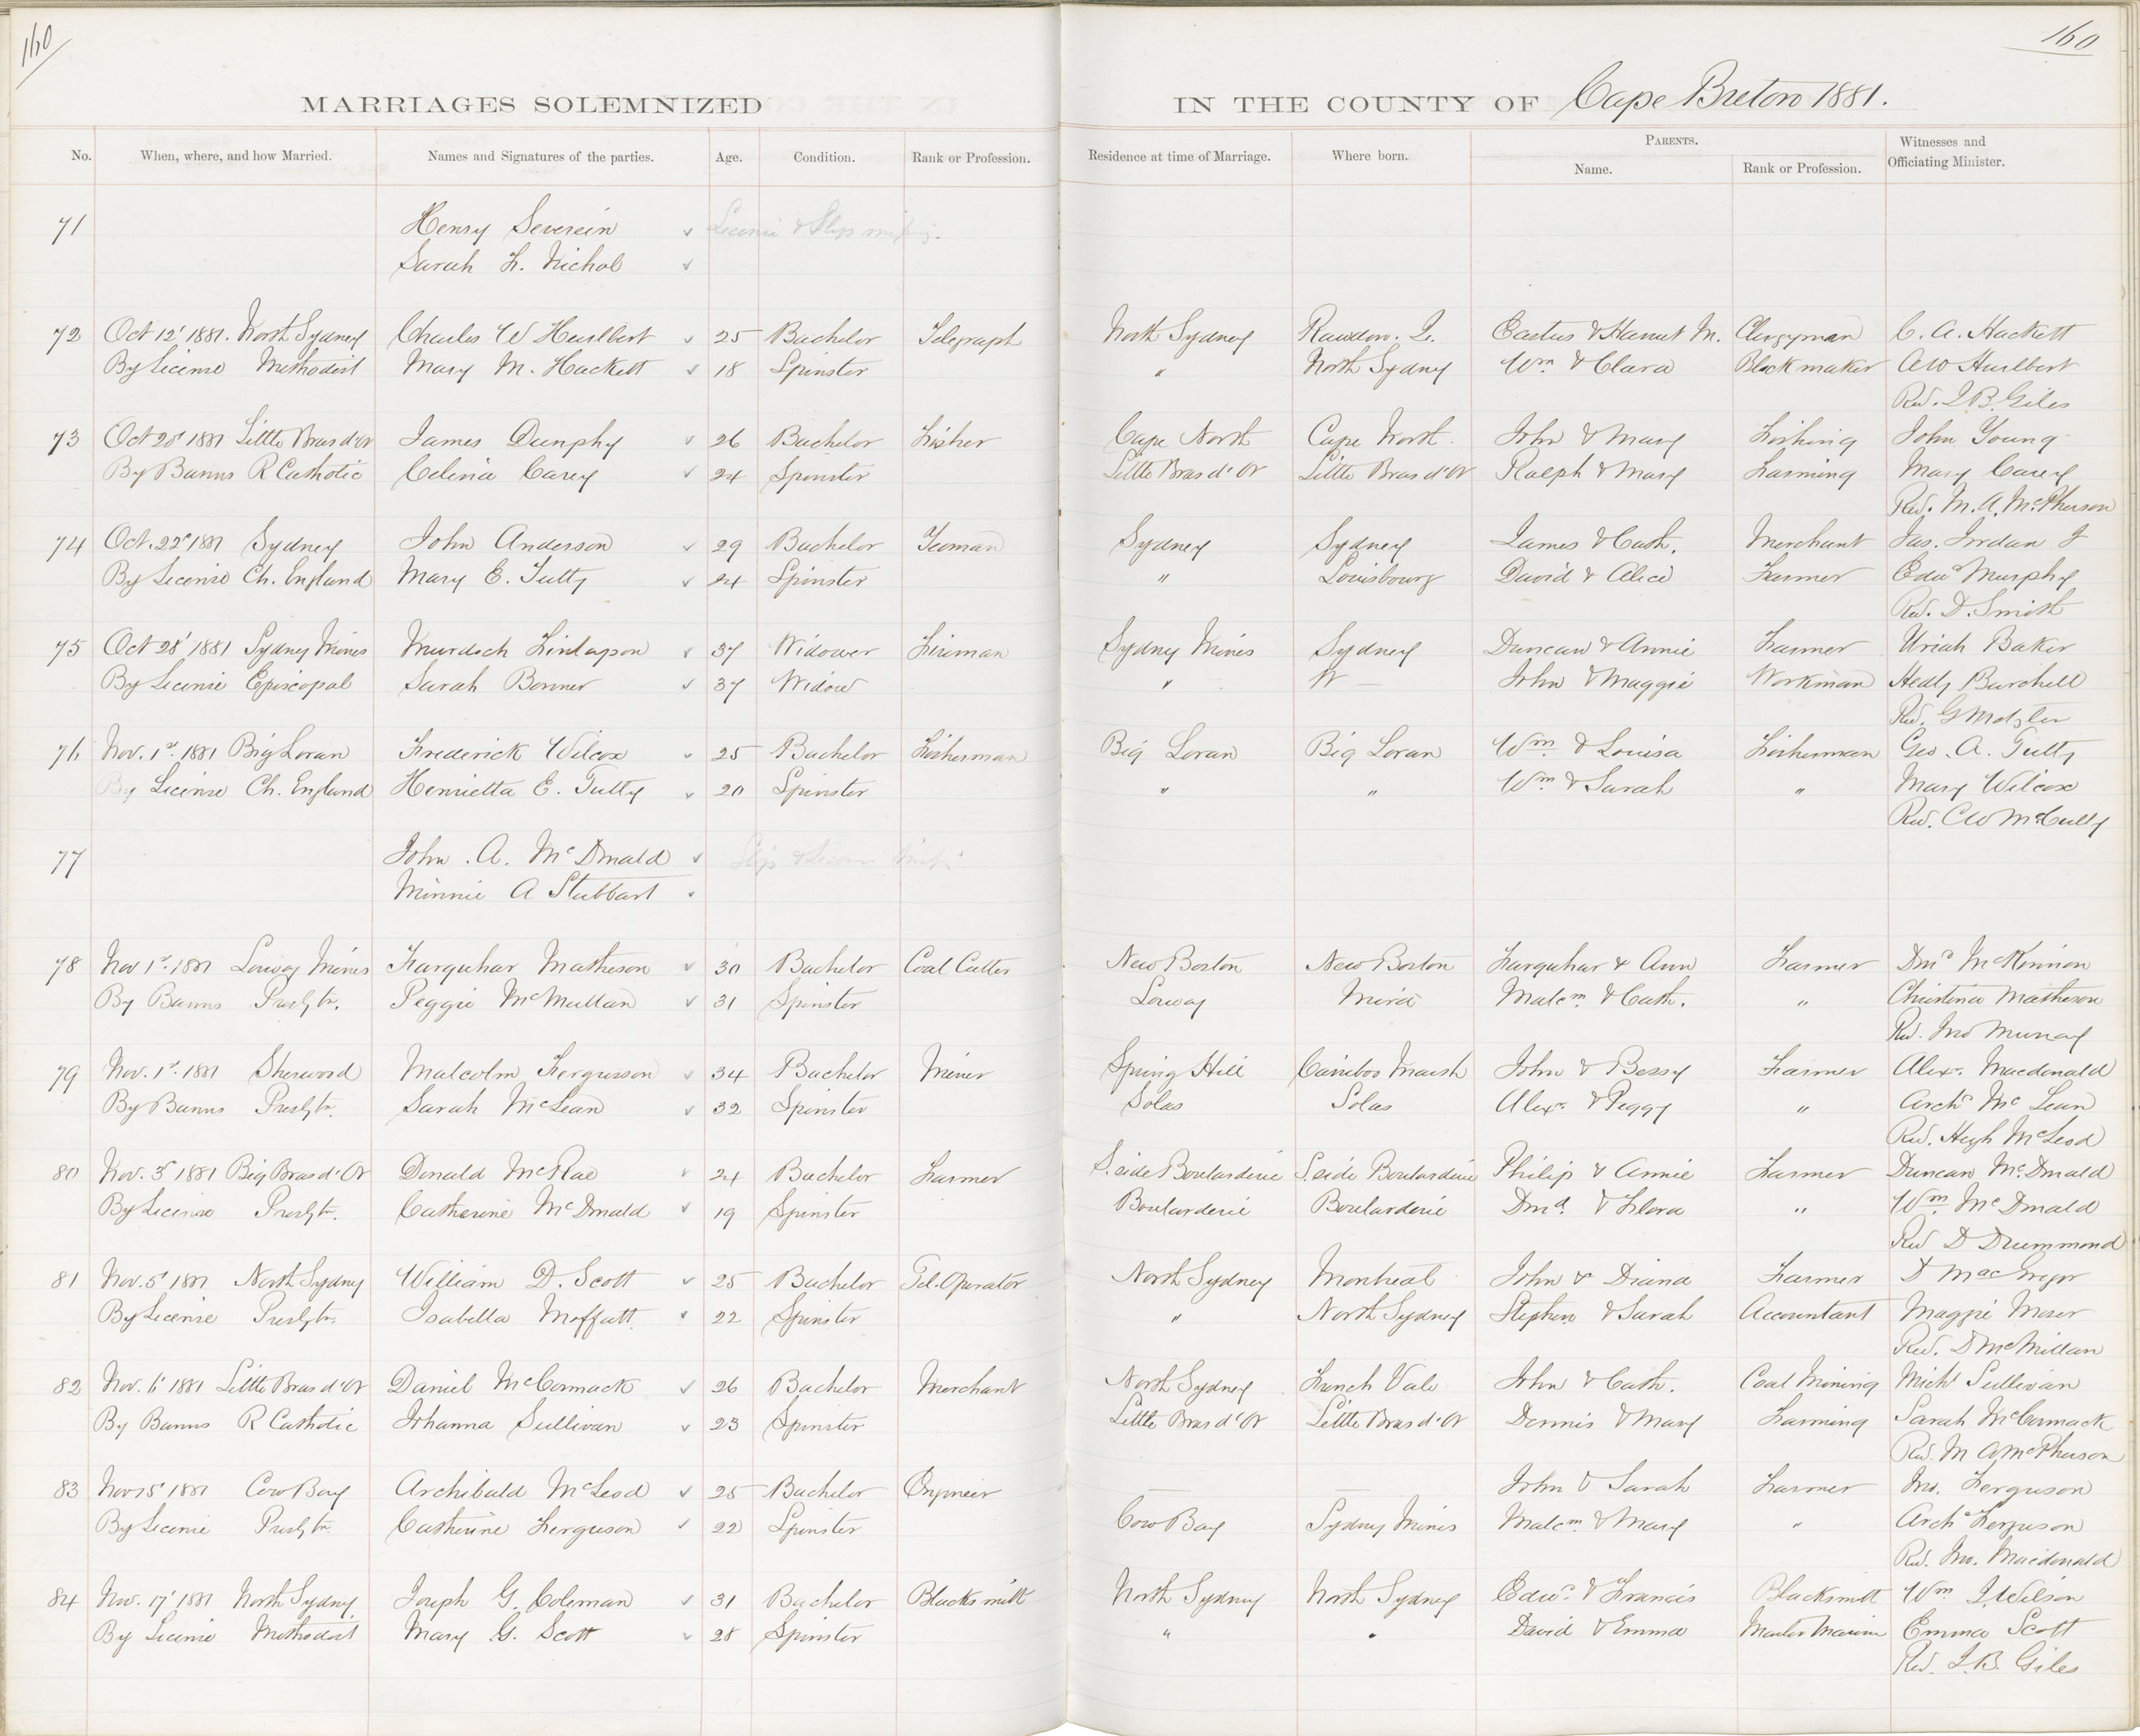 160
160
MARRIAGES SOLEMNIZED IN THE COUNTY OF Cape Breton 1881.
No. When, where, and how Married. Names and Signatures of the parties. Age. Condition. Rank or Profession. Residence at time of Marriage. Where born. PARENTS. Name. Rank or Profession. Witnesses and Officiating Minister.
71 Henry Severein Licence & Slip missing.
Sarah F. Nichol
72 Oct 12' 1881. North Sydney Charles W Hurlbert 25 Bachelor Telegraph North Sydney Rawdon. Q. Erastus & Harriet M. Clergyman C. A. Hackett
By License Methodist Mary M. Hackett 18 Spinster " North Sydney Wm & Clara Block maker A W Hurlbert
Rev. J. B. Giles
73 Oct 20' 1881 Little Bras d'Or James Dunphy 26 Bachelor Fisher Cape North Cape North. John & Mary Fishing John Young
By Banns R Catholic Celina Carey 24 Spinster Little Bras d'Or Little Bras d'Or Ralph & Mary Farming Mary Carey
Rev. M. A. McPherson
74 Oct. 22' 1881 Sydney John Anderson 29 Bachelor Yeoman Sydney Sydney James & Cath. Merchant Jas. Jordan J
By License Ch. England Mary E. Tutty 24 Spinster " Louisbourg David & Alice Farmer Edwd Murphy
Rev. D. Smith
75 Oct 28' 1881 Sydney Mines Murdoch Finlayson 37 Widower Fireman Sydney Mines Sydney Duncan & Annie Farmer Uriah Baker
By License Episcopal Sarah Bonner 37 Widow " John & Maggie Workman Hedly Burchell
Rev. G Metzler
76 Nov. 1st. 1881 Big Loran Frederick Wilcox 25 Bachelor Fisherman Big Loran Big Loran Wm & Louisa Fisherman Geo. A. Tutty
By License Ch. England Henrietta E. Tutty 20 Spinster " " Wm & Sarah " Mary Wilcox
Rev. C W McCully
77 John. A. McDonald Slip & Licence
Minnie A Stubbart
78 Nov 1st. 1881 Lorway Mines Farquhar Matheson 30 Bachelor Coal Cutter New Boston New Boston Farquhar & Ann Farmer Dond McKinnon
By Banns Presbtn. Peggie McMullan 31 Spinster Lorway Mira Malcm. & Cath. " Christina Matheson
Rev. Jno Murray
79 Nov. 1st. 1881 Sherwood Malcolm Fergusson 34 Bachelor Miner Spring Hill Cariboo Marsh John & Bessy Farmer Alexr. Macdonald
By Banns Presbtn. Sarah McLean 32 Spinster Solas Solas Alexr. & Peggy " Archd McLean
Rev. Hugh McLeod
80 Nov. 3' 1881 Big Bras d'Or Donald McRae 24 Bachelor Farmer S. side Boularderie S. side Boularderie Philip & Annie Farmer Duncan McDonald
By License Presbtn. Catherine McDonald 19 Spinster Boularderie Boularderie Dond. & Flora " Wm McDonald
Rev D Drummond
81 Nov. 5' 1881 North Sydney William D. Scott 25 Bachelor Tel. Operator North Sydney Montreal John & Diana Farmer D MacGregor
By License Presbtn. Isabella Moffatt 22 Spinster " North Sydney Stephen & Sarah Accountant Maggie Moser
Rev. D McMillan
82 Nov. 6' 1881 Little Bras d'Or Daniel McCormack 26 Bachelor Merchant North Sydney French Vale John & Cath. Coal Mining Michl Sullivan
By Banns R Catholic Johanna Sullivan 23 Spinster Little Bras d'Or Little Bras d'Or Dennis & Mary Farming Sarah McCormack
Rev. M A McPherson
83 Nov 15' 1881 Cow Bay Archibald McLeod 25 Bachelor Engineer — — John & Sarah Farmer Jno. Ferguson
By License Presbtn Catherine Ferguson 22 Spinster Cow Bay Sydney Mines Malcm. & Mary " Archd Ferguson
Rev. Jno. Macdonald
84 Nov. 17' 1881 North Sydney Joseph G. Coleman 31 Bachelor Blacksmith North Sydney North Sydney Edwd. & Francis Blacksmith Wm J. Wilson
By License Methodist Mary G. Scott 28 Spinster " " David & Emma Master Mariner Emma Scott
Rev. J. B. Giles